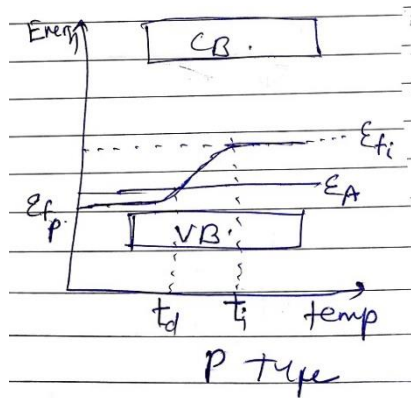 Energy
CB.
Efi
EA
Efp.
VB.
td ti temp
P type